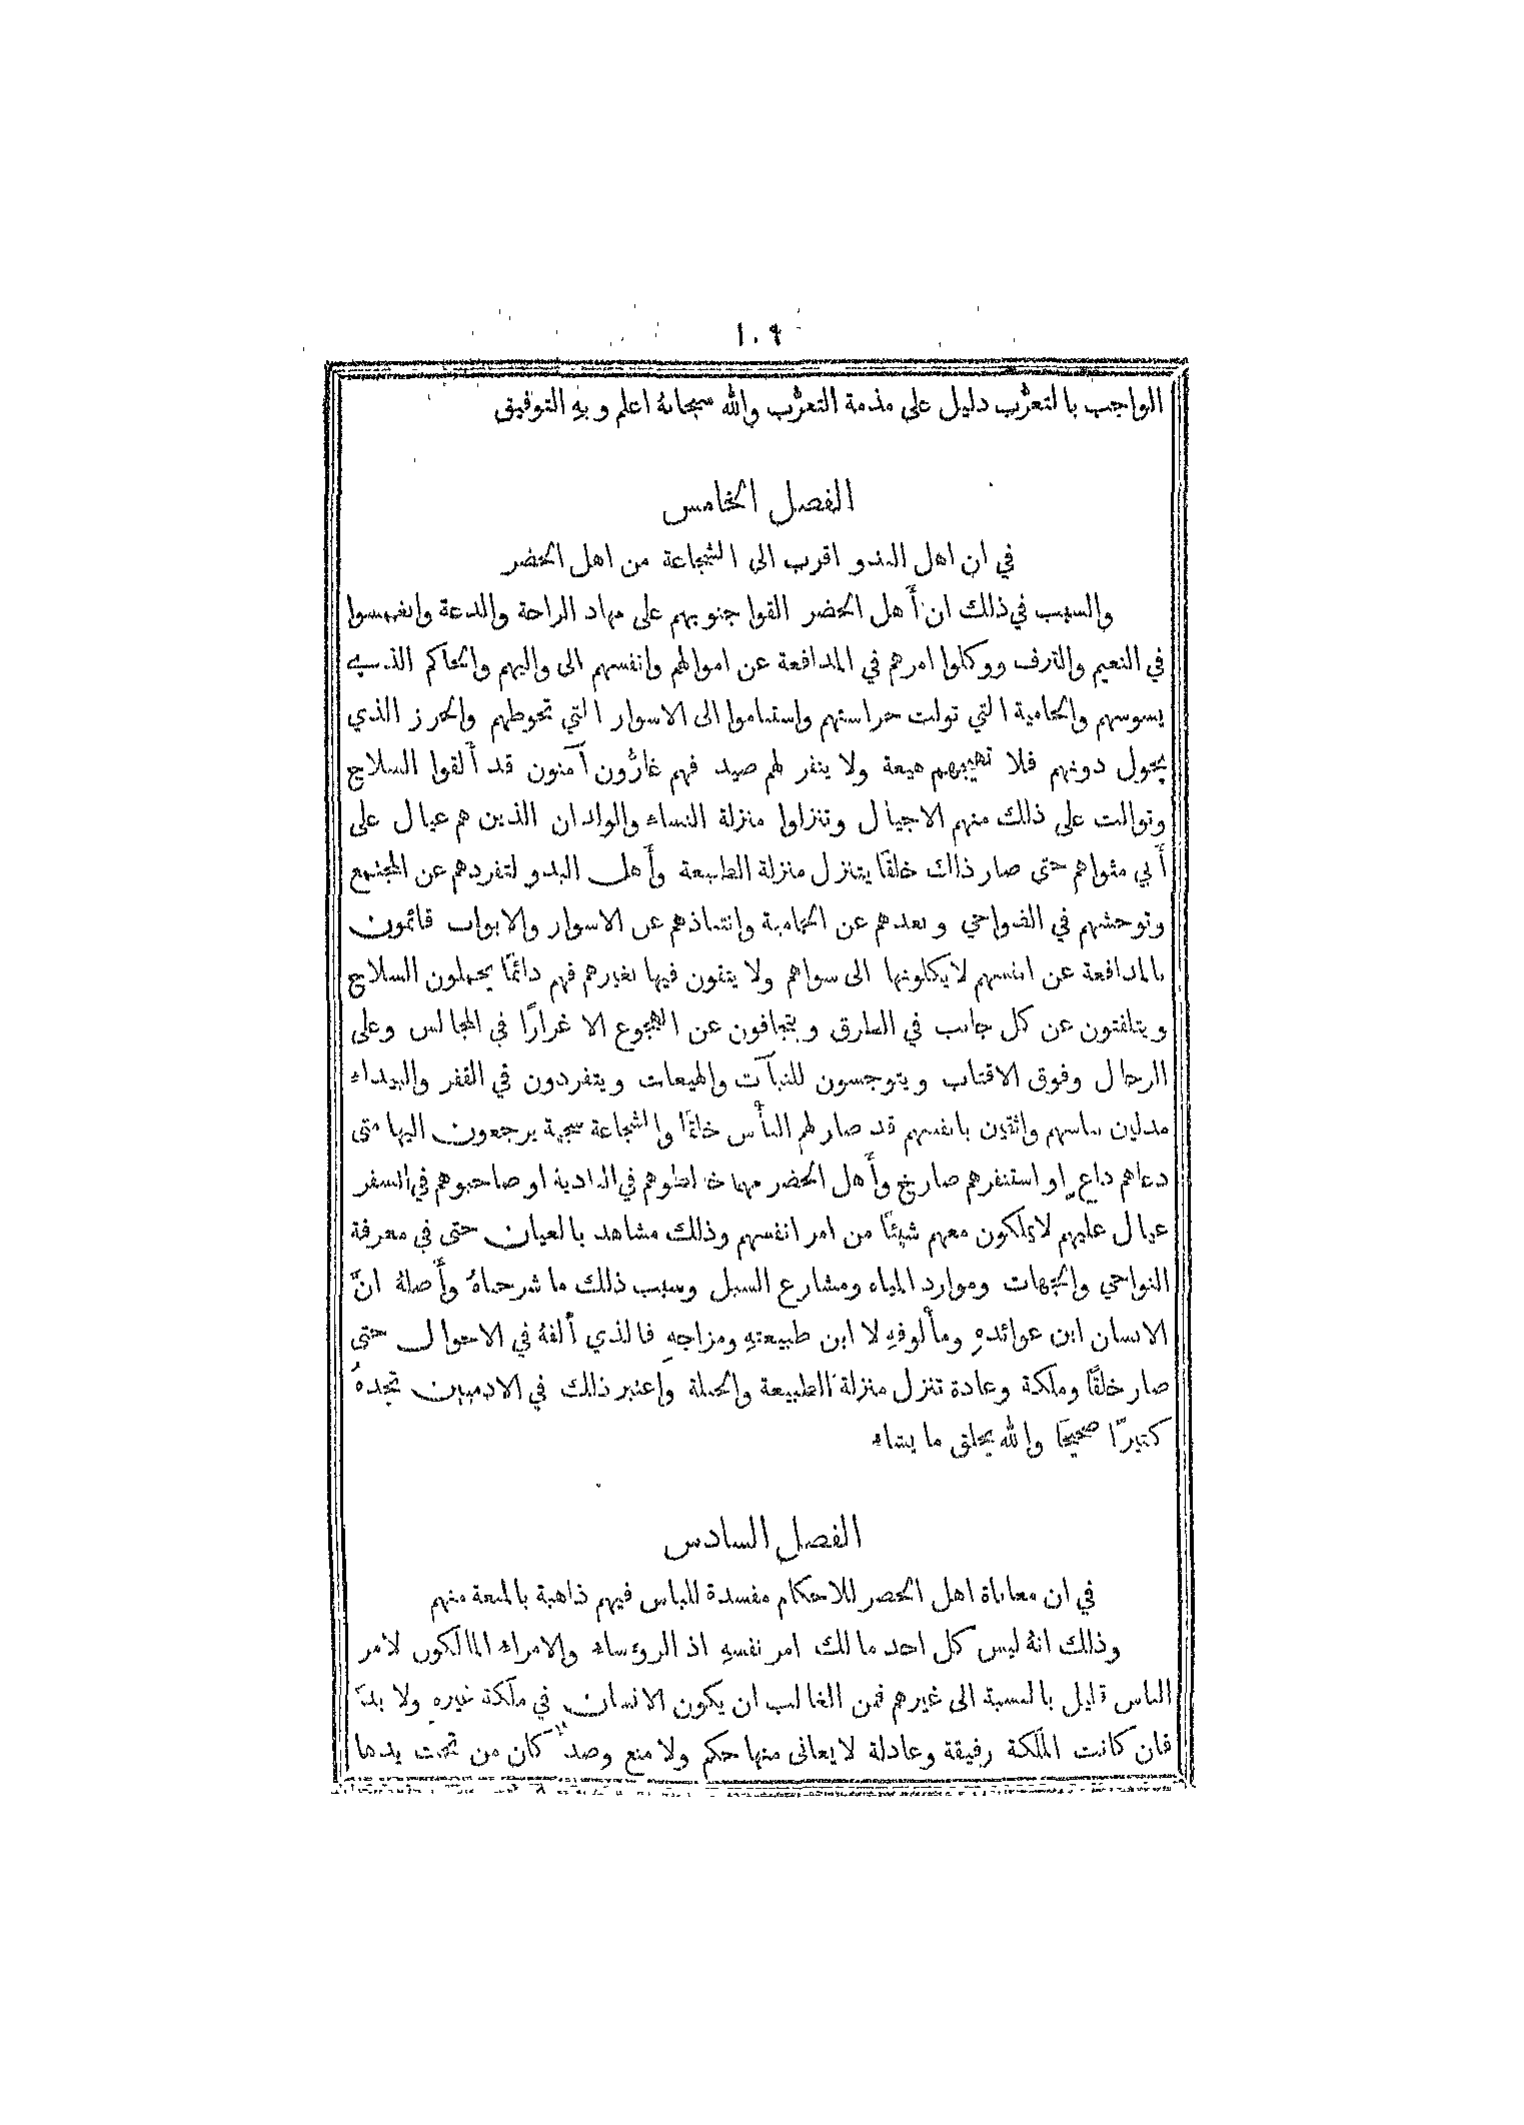 ١٠٩
الواجب بالتعرُّب دليل على مذمة التعرُّب والله سبحانهُ اعلم وبهِ التوفيق
الفصل الخامس
في ان اهل البدو اقرب الى الشجاعة من اهل الحضر
والسبب في ذلك ان أَهل الحضر القوا جنوبهم على مهاد الراحة والدعة وانغمسوا
في النعيم والترف ووكلوا امرهم في المدافعة عن اموالهم وانفسهم الى واليهم والحاكم الذي
يسوسهم والحامية التي تولت حراستهم واستناموا الى الاسوار التي تحوطهم والحرز الذي
يحول دونهم فلا تهيجهم هيعة ولا ينفر لهم صيد فهم غارُّون آمنون قد أَلقوا السلاح
وتوالت على ذلك منهم الاجيال وتنزلوا منزلة النساء والولدان الذين هم عيال على
أَبي مثواهم حتى صار ذلك خلقًا يتنزل منزلة الطبيعة وأَهل البدو لتفردهم عن المجتمع
وتوحشهم في الضواحي وبعدهم عن الحامية وانتباذهم عن الاسوار والابواب قائمون
بالمدافعة عن انفسهم لا يكلونها الى سواهم ولا يثقون فيها بغيرهم فهم دائمًا يحملون السلاح
ويتلفتون عن كل جانب في الطرق ويتجافون عن الهجوع الا غرارًا في المجالس وعلى
الرحال وفوق الاقتاب ويتوجسون للنبآت والهيعات ويتفردون في القفر والبيداء
مدلين بباسهم واثقين بانفسهم قد صار لهم البأْس خلقًا والشجاعة سجية يرجعون اليها متى
دعاهم داعٍ او استنفرهم صارخ وأَهل الحضر مهما خالطوهم في البادية او صاحبوهم في السفر
عيال عليهم لا يملكون معهم شيئًا من امر انفسهم وذلك مشاهد بالعيان حتى في معرفة
النواحي والجهات وموارد المياه ومشارع السبل وسبب ذلك ما شرحناهُ وأَصلهُ انَّ
الانسان ابن عوائدهِ ومأْلوفهِ لا ابن طبيعتهِ ومزاجهِ فالذي أَلفهُ في الاحوال حتى
صار خلقًا وملكة وعادة تنزل منزلة الطبيعة والجبلة واعتبر ذلك في الادميين تجدهُ
كثيرًا صحيحًا والله يخلق ما يشاء
الفصل السادس
في ان معاناة اهل الحضر للاحكام مفسدة للباس فيهم ذاهبة بالمنعة منهم
وذلك انهُ ليس كل احد مالك امر نفسهِ اذ الروءساء والامراء المالكون لامر
الناس قليل بالنسبة الى غيرهم فمن الغالب ان يكون الانسان في ملكة غيرهِ ولا بدَّ
فان كانت الملَكة رفيقة وعادلة لا يعانى منها حكم ولا منع وصدٌّ كان من تحت يدها